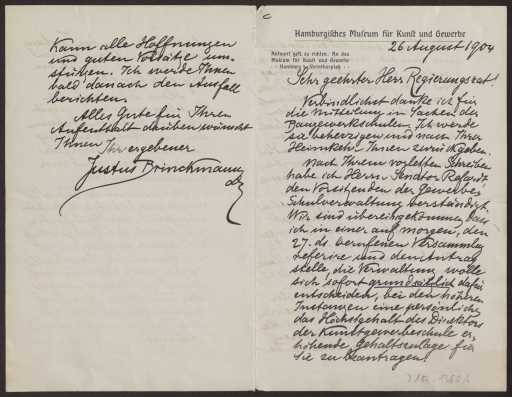 Hamburgisches Museum für Kunst und Gewerbe
Antwort gefl. zu richten: An das
Museum für Kunst und Gewerbe
Hamburg 5, Steinthorplatz
26 August 1904
Sehr geehrter Herr Regierungsrat!
Verbindlichst danke ich für
die Mitteilung in Sachen der
Baugewerkschulen. Ich werde
sie beherzigen und nach Ihrer
Heimkehr Ihnen zurückgeben.
Nach Ihrem vorletzten Schreiben
habe ich Herrn Senator Refardt
den Vorsitzenden der Gewerbe-
Schulverwaltung verständigt.
Wir sind übereingekommen, dass
ich in einer auf morgen, den
27. ds. berufenen Versammlung
referire und den Antrag
stelle, die Verwaltung wolle
sich sofort grundsätzlich dafür
entscheiden, bei den höheren
Instanzen eine persönliche
das Höchstgehalt des Direktors
der Kunstgewerbeschule er-
höhende Gehaltszulage für
Sie zu beantragen.
Kann alle Hoffnungen
und guten Vorsätze um-
stürzen. Ich werde Ihnen
bald danach den Ausfall
berichten.
Alles Gute für Ihren
Aufenthalt darüben wünscht
Ihnen Ihr ergebener
Justus Brinckmann